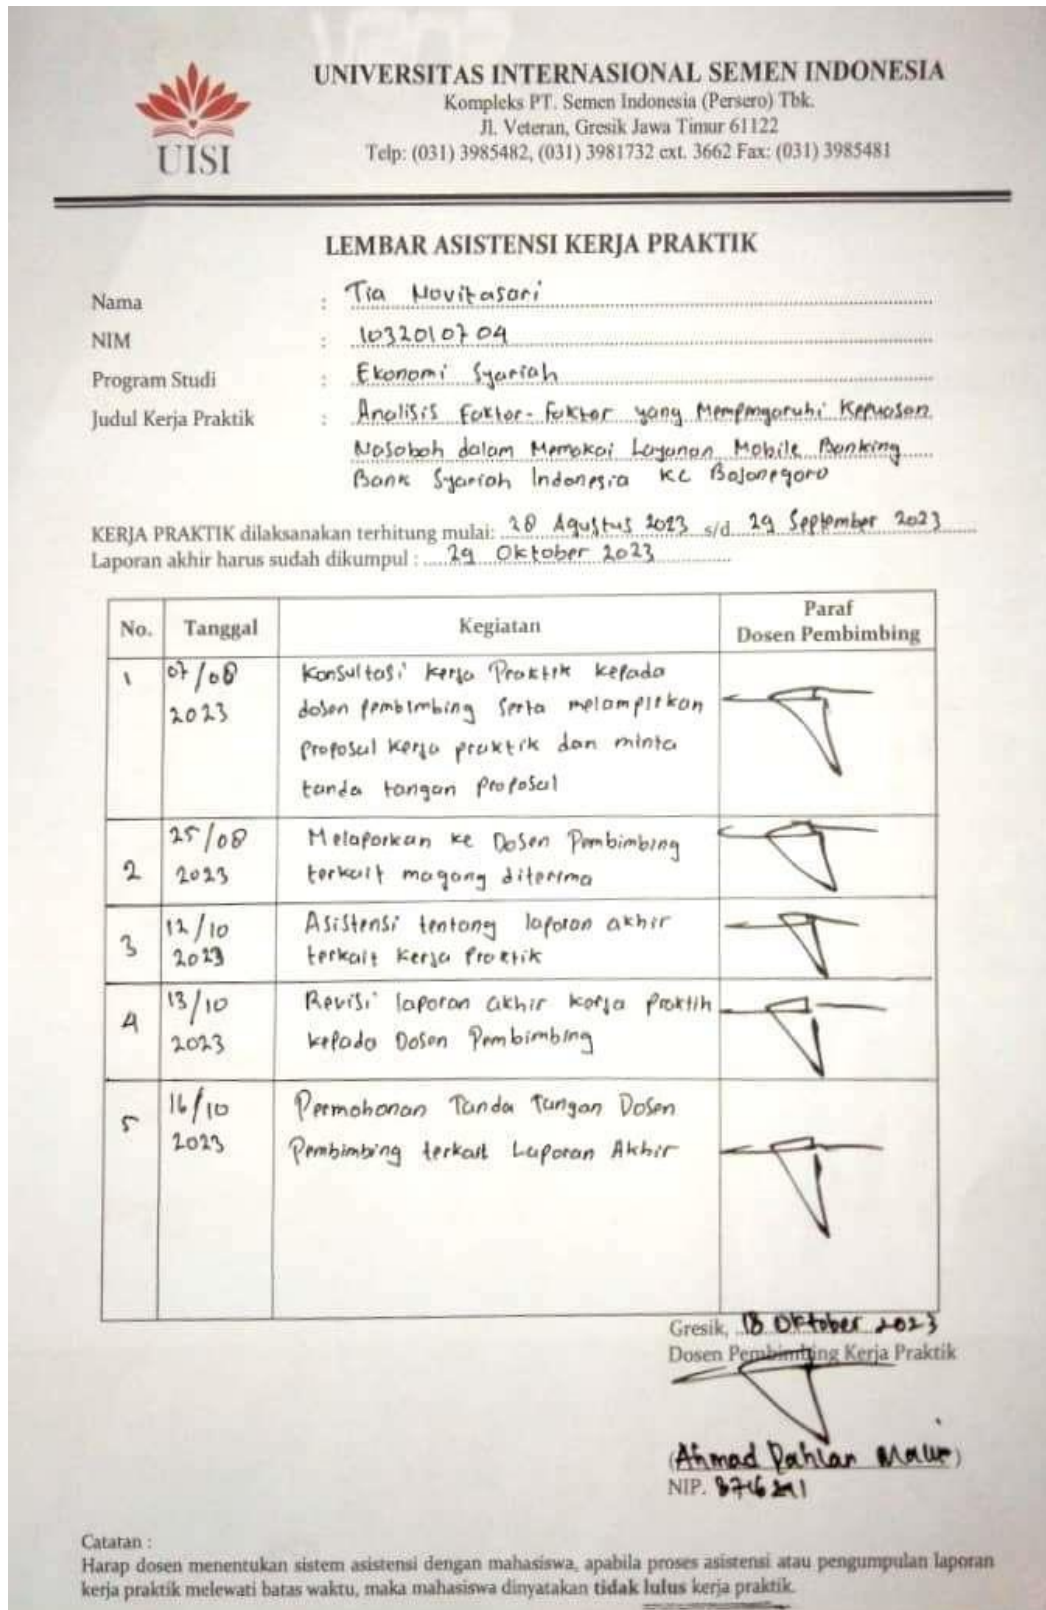 UNIVERSITAS INTERNASIONAL SEMEN INDONESIA
Kompleks PT. Semen Indonesia (Persero) Tbk.
Jl. Veteran, Gresik Jawa Timur 61122
Telp: (031) 3985482, (031) 3981732 ext. 3662 Fax: (031) 3985481
UISI
LEMBAR ASISTENSI KERJA PRAKTIK
Nama : Tia Novitasari
NIM : 1032010704
Program Studi : Ekonomi Syariah
Judul Kerja Praktik : Analisis Faktor-Faktor yang Mempengaruhi Kepuasan
Nasabah dalam Memakai Layanan Mobile Banking
Bank Syariah Indonesia KC Bojonegoro
KERJA PRAKTIK dilaksanakan terhitung mulai: 28 Agustus 2023 s/d 29 September 2023
Laporan akhir harus sudah dikumpul : 29 Oktober 2023
No. Tanggal Kegiatan Paraf
Dosen Pembimbing
1 07/08 Konsultasi Kerja Praktik kepada
2023 dosen pembimbing serta melampirkan
proposal kerja praktik dan minta
tanda tangan proposal
25/08 Melaporkan ke Dosen Pembimbing
2 2023 terkait magang diterima
3 12/10 Asistensi tentang laporan akhir
2023 terkait Kerja Praktik
4 13/10 Revisi laporan akhir kerja praktik
2023 kepada Dosen Pembimbing
5 16/10 Permohonan Tanda Tangan Dosen
2023 Pembimbing terkait Laporan Akhir
Gresik, 18 Oktober 2023
Dosen Pembimbing Kerja Praktik
(Ahmad Dahlan)
NIP.
Catatan :
Harap dosen menentukan sistem asistensi dengan mahasiswa, apabila proses asistensi atau pengumpulan laporan
kerja praktik melewati batas waktu, maka mahasiswa dinyatakan tidak lulus kerja praktik.